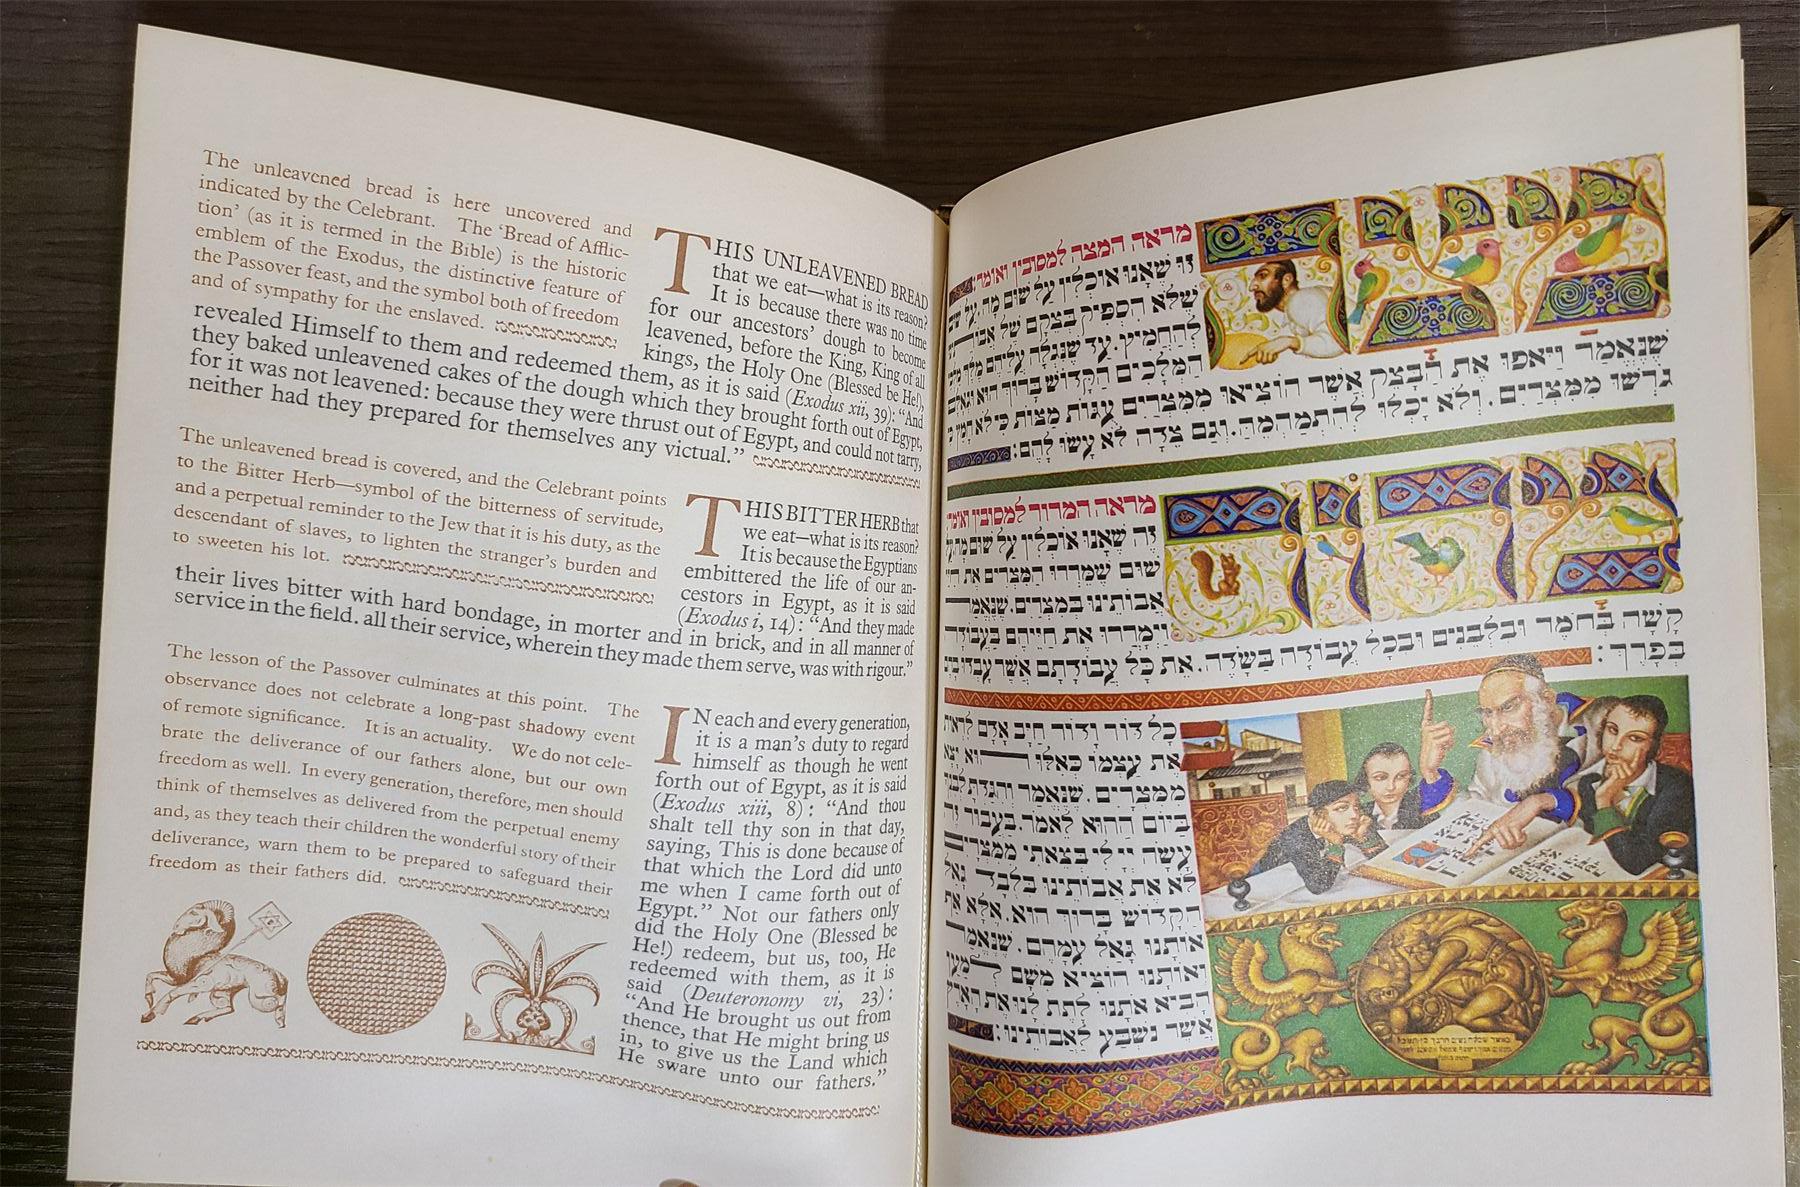 The unleavened bread is here uncovered and
indicated by the Celebrant. The ‘Bread of Afflic-
tion’ (as it is termed in the Bible) is the historic
emblem of the Exodus, the distinctive feature of
the Passover feast, and the symbol both of freedom
and of sympathy for the enslaved.
THIS UNLEAVENED BREAD
that we eat—what is its reason?
It is because there was no time
for our ancestors’ dough to become
leavened, before the King, King of all
kings, the Holy One (Blessed be He!),
revealed Himself to them and redeemed them, as it is said (Exodus xii, 39): “And
they baked unleavened cakes of the dough which they brought forth out of Egypt,
for it was not leavened: because they were thrust out of Egypt, and could not tarry,
neither had they prepared for themselves any victual.”
The unleavened bread is covered, and the Celebrant points
to the Bitter Herb—symbol of the bitterness of servitude,
and a perpetual reminder to the Jew that it is his duty, as the
descendant of slaves, to lighten the stranger’s burden and
to sweeten his lot.
THIS BITTER HERB that
we eat—what is its reason?
It is because the Egyptians
embittered the life of our an-
cestors in Egypt, as it is said
(Exodus i, 14): “And they made
their lives bitter with hard bondage, in morter and in brick, and in all manner of
service in the field. all their service, wherein they made them serve, was with rigour.”
The lesson of the Passover culminates at this point. The
observance does not celebrate a long-past shadowy event
of remote significance. It is an actuality. We do not cele-
brate the deliverance of our fathers alone, but our own
freedom as well. In every generation, therefore, men should
think of themselves as delivered from the perpetual enemy
and, as they teach their children the wonderful story of their
deliverance, warn them to be prepared to safeguard their
freedom as their fathers did.
IN each and every generation,
it is a man’s duty to regard
himself as though he went
forth out of Egypt, as it is said
(Exodus xiii, 8): “And thou
shalt tell thy son in that day,
saying, This is done because of
that which the Lord did unto
me when I came forth out of
Egypt.” Not our fathers only
did the Holy One (Blessed be
He!) redeem, but us, too, He
redeemed with them, as it is
said (Deuteronomy vi, 23):
“And He brought us out from
thence, that He might bring us
in, to give us the Land which
He sware unto our fathers.”
מצה
מראה המצה למסובין ואומר:
זו שֶׁאָנוּ אוֹכְלִין עַל שׁוּם מָה. עַל שׁוּם
שֶׁלֹּא הִסְפִּיק בְּצֵקָם שֶׁל
לְהַחֲמִיץ. עַד שֶׁנִּגְלָה עֲלֵיהֶם מֶלֶךְ
הַמְּלָכִים הַקָּדוֹשׁ בָּרוּךְ הוּא וּגְאָלָם
שֶׁנֶּאֱמַר וַיֹּאפוּ אֶת הַבָּצֵק אֲשֶׁר הוֹצִיאוּ מִמִּצְרַיִם עֻגוֹת מַצּוֹת כִּי לֹא חָמֵץ כִּי
גֹרְשׁוּ מִמִּצְרַיִם. וְלֹא יָכְלוּ לְהִתְמַהְמֵהַּ. וְגַם צֵדָה לֹא עָשׂוּ לָהֶם:
מרור
מראה המרור למסובין ואומר
זֶה שֶׁאָנוּ אוֹכְלִין עַל שׁוּם מָה. עַל
שׁוּם שֶׁמֵּרְרוּ הַמִּצְרִים אֶת חַיֵּי
אֲבוֹתֵינוּ בְּמִצְרַיִם. שֶׁנֶּאֱמַר
וַיְמָרְרוּ אֶת חַיֵּיהֶם בַּעֲבוֹדָה
קָשָׁה בְּחֹמֶר וּבִלְבֵנִים וּבְכָל עֲבוֹדָה בַּשָּׂדֶה. אֵת כָּל עֲבוֹדָתָם אֲשֶׁר עָבְדוּ בָהֶם
בְּפָרֶךְ:
כָּל דּוֹר וָדוֹר חַיָּב אָדָם לִרְאוֹת
אֶת עַצְמוֹ כְּאִלּוּ הוּא יָצָא
מִמִּצְרַיִם. שֶׁנֶּאֱמַר וְהִגַּדְתָּ לְבִנְךָ
בַּיּוֹם הַהוּא לֵאמֹר. בַּעֲבוּר זֶה
עָשָׂה יְיָ לִי בְּצֵאתִי מִמִּצְרָיִם
לֹא אֶת אֲבוֹתֵינוּ בִּלְבַד גָּאַל
הַקָּדוֹשׁ בָּרוּךְ הוּא. אֶלָּא אַף
אוֹתָנוּ גָּאַל עִמָּהֶם. שֶׁנֶּאֱמַר
וְאוֹתָנוּ הוֹצִיא מִשָּׁם לְמַעַן
הָבִיא אֹתָנוּ לָתֶת לָנוּ אֶת הָאָרֶץ
אֲשֶׁר נִשְׁבַּע לַאֲבוֹתֵינוּ: